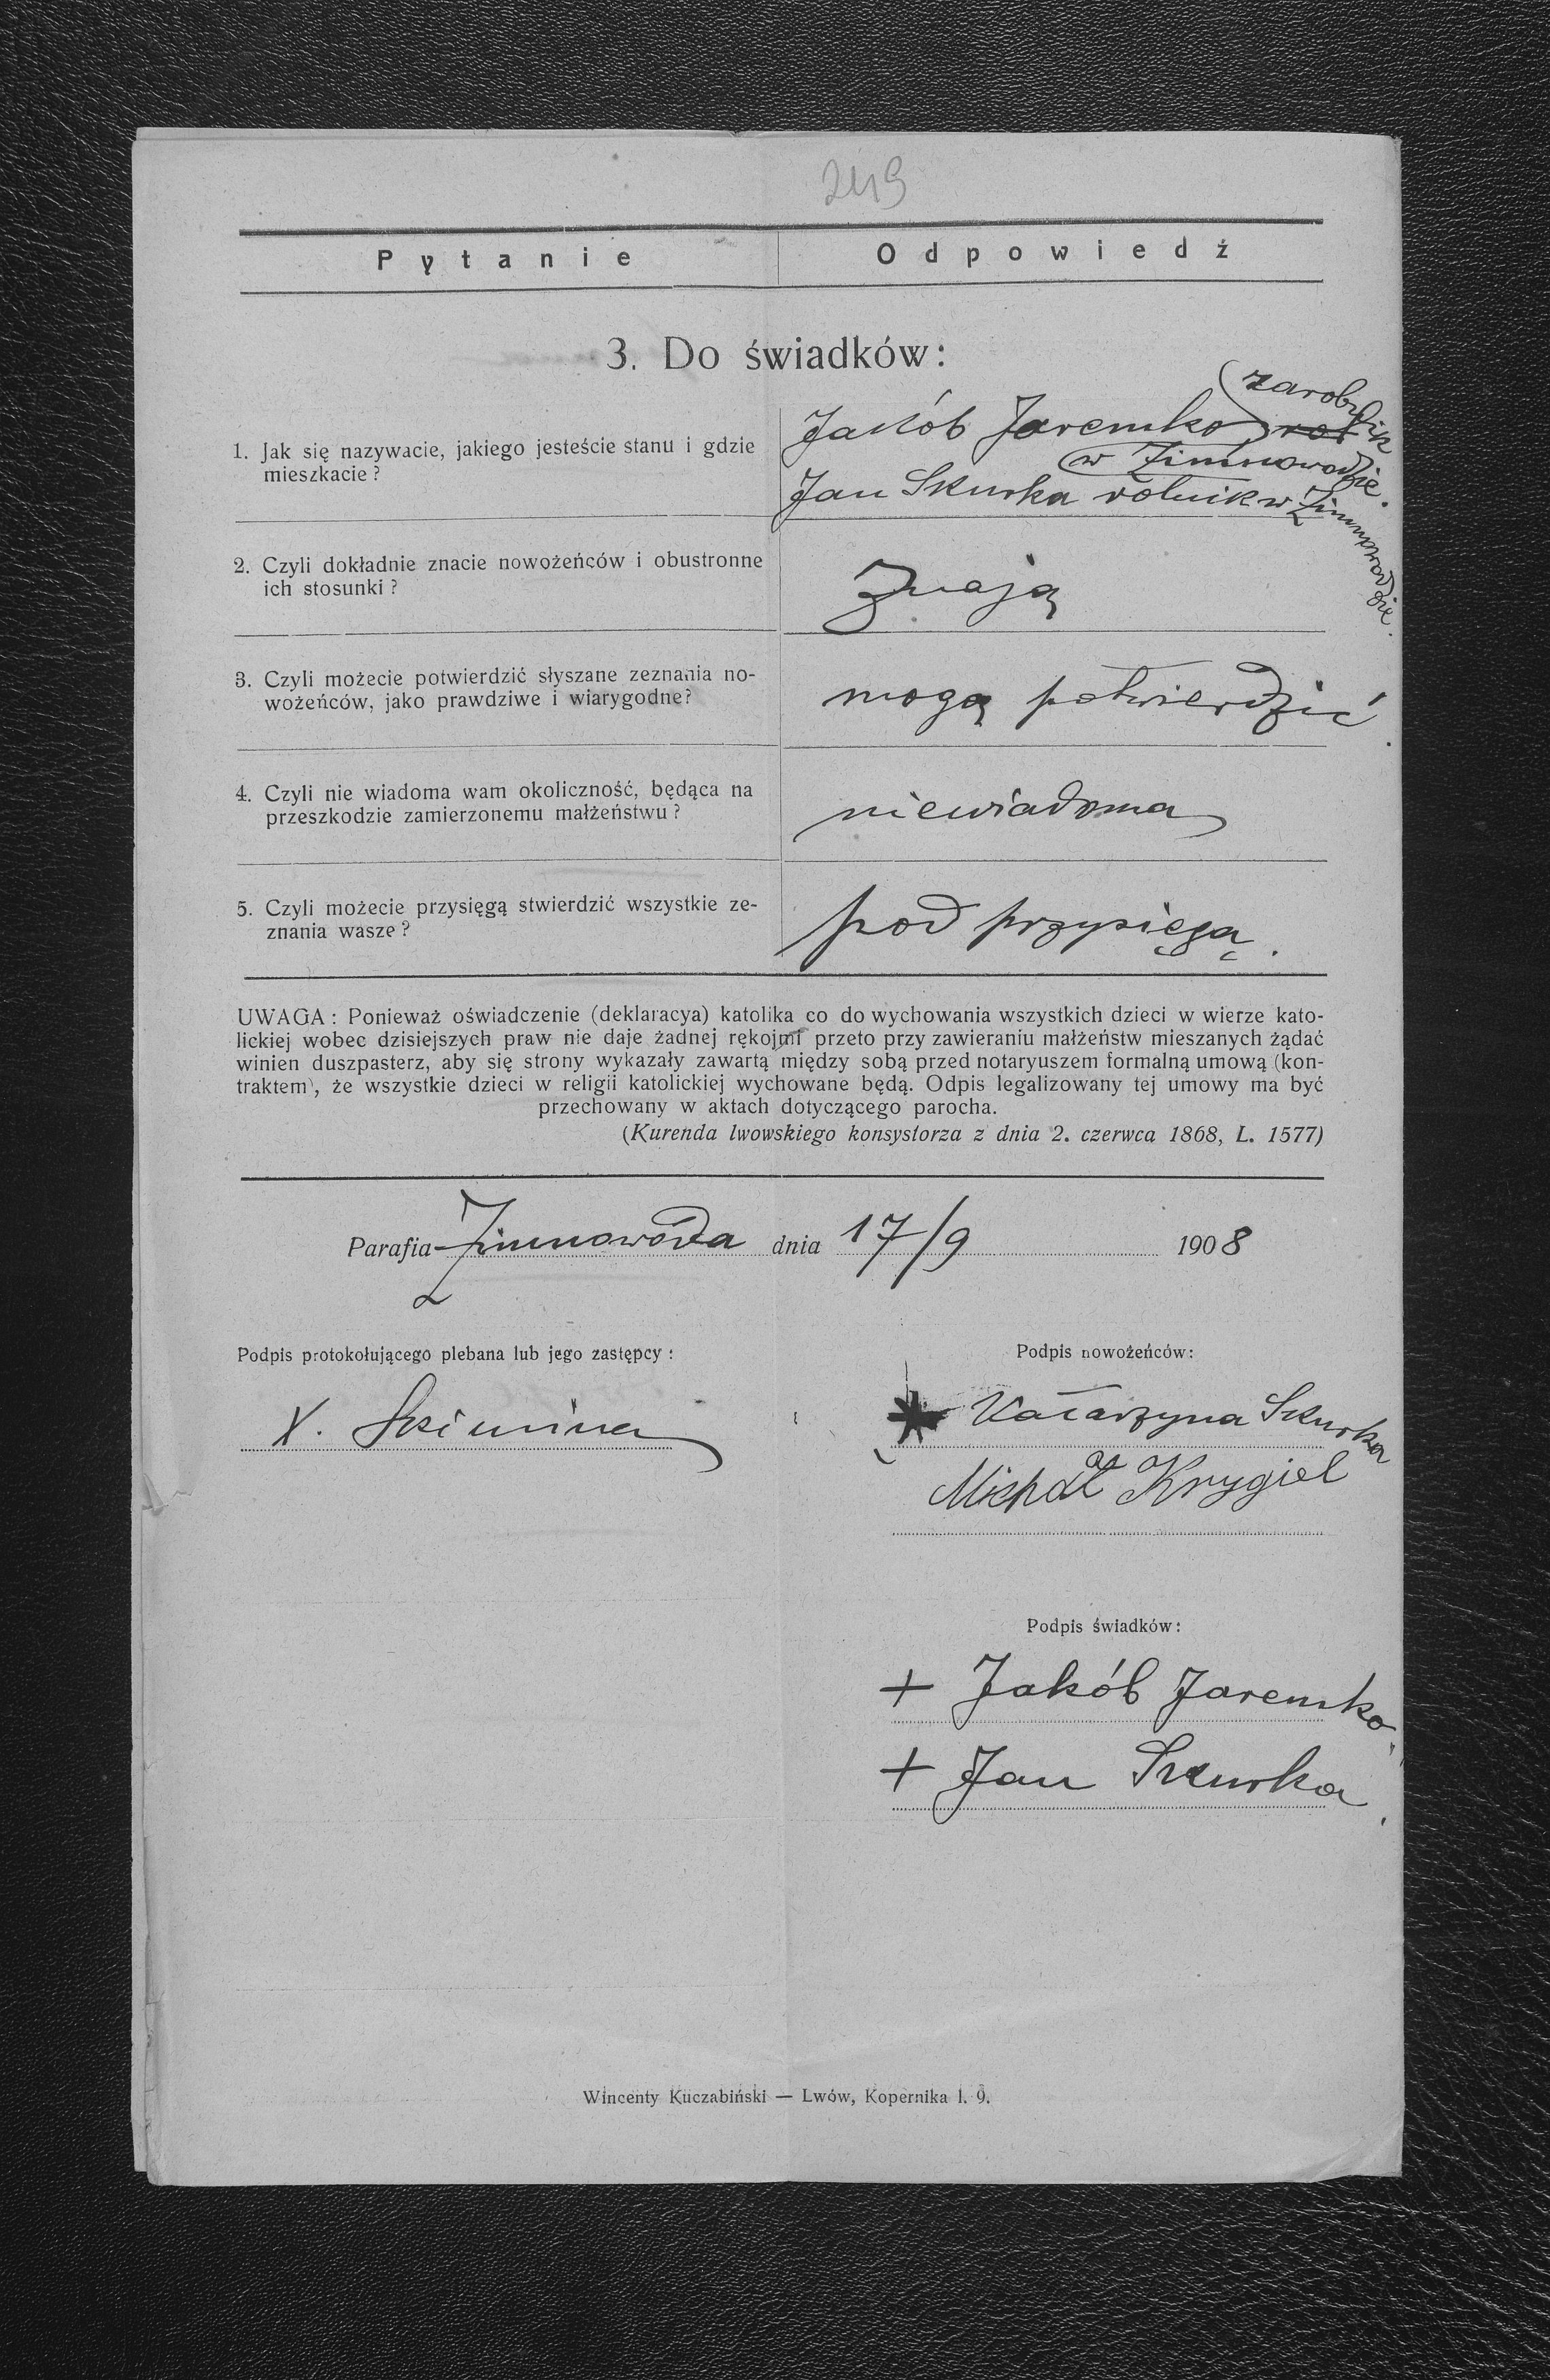 249
Pytanie Odpowiedź
3. Do świadków:
1. Jak się nazywacie, jakiego jesteście stanu i gdzie
mieszkacie?
Jakób Jaremko, ~~rol~~ zarobnik
w Zimnowodzie.
Jan Skurka rolnik w Zimnowodzie.
2. Czyli dokładnie znacie nowożeńców i obustronne
ich stosunki?
Znają
3. Czyli możecie potwierdzić słyszane zeznania no-
wożeńców, jako prawdziwe i wiarygodne?
mogą potwierdzić.
4. Czyli nie wiadoma wam okoliczność, będąca na
przeszkodzie zamierzonemu małżeństwu?
niewiadoma
5. Czyli możecie przysięgą stwierdzić wszystkie ze-
znania wasze?
pod przysięgą.
UWAGA: Ponieważ oświadczenie (deklaracya) katolika co do wychowania wszystkich dzieci w wierze kato-
lickiej wobec dzisiejszych praw nie daje żadnej rękojmi przeto przy zawieraniu małżeństw mieszanych żądać
winien duszpasterz, aby się strony wykazały zawartą między sobą przed notaryuszem formalną umową (kon-
traktem), że wszystkie dzieci w religii katolickiej wychowane będą. Odpis legalizowany tej umowy ma być
przechowany w aktach dotyczącego parocha.
(Kurenda lwowskiego konsystorza z dnia 2. czerwca 1868, L. 1577)
Parafia Zimnowóda dnia 17/9 1908
Podpis protokołującego plebana lub jego zastępcy:
X.
Podpis nowożeńców:
Katarzyna Skurka
Michał Krygiel
Podpis świadków:
+ Jakób Jaremko
+ Jan Skurka
Wincenty Kuczabiński — Lwów, Kopernika l. 9.